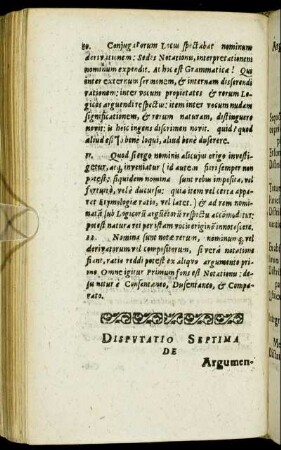 20. Conjugatorum Locus spectabat nominum
derivationem: Sedes Notationis, interpretationem
nominum expendit. At hoc est Grammatica! Qui
inter externum sermonem, & internam disserendi
rationem: inter vocum propietates & rerum Lo-
gicos arguendi respectus: item inter vocum nudam
significationem, & rerum naturam, distinguere
novit: is heic ingens discrimen novit. quid? quod
aliud est bene loqui, aliud bene disserere.
21. Quod si ergo nominis alicujus origo investi-
getur, atq; inveniatur (id autem fieri semper non
potest: siquidem nomina sunt rebus imposita, vel
fortuitò, vel ducursu: quia item vel certa appa-
ret Etymologiæ ratio, vel latet.) & ad rem nomi-
natam sub Logicorum argumentorum respectu accomodetur:
potest natura rei per istam vocis originem innotescere.
22. Nomina sunt notæ rerum, nominumq; vel
derivatorum vel compositorum, si vera notatione
fiant, ratio reddi potest ex aliquo argumento pri-
mo Omne igitur Primum fons est Notationis: de-
sumitur à Consentaneo, Dissentaneo, & Compa-
rato.
DISPUTATIO SEPTIMA
DE
Argumen-